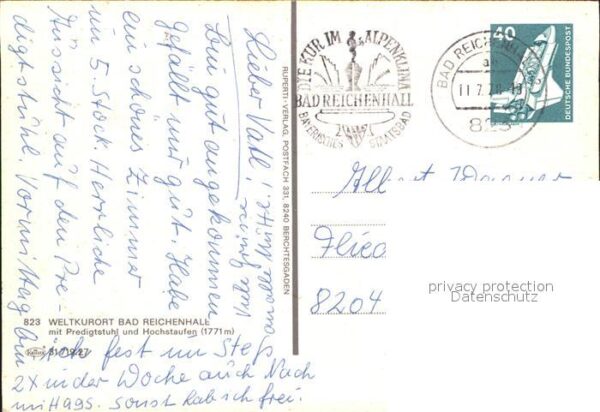 Lieber Vati!
Bin gut angekommen
gefällt mir gut. Habe
ein schönes Zimmer
im 5 Stock. Herrliche
Aussicht auf den Pre-
digtstuhl Vormittag bin
ich fest im Stess
2X in der Woche auch Nach
mittags. Sonst hab ich frei.
823 WELTKURORT BAD REICHENHALL
mit Predigtstuhl und Hochstaufen (1771m)
RUPERTI-VERLAG, POSTFACH 331, 8240 BERCHTESGADEN
DIE KUR IM ALPENKLIMA
BAD REICHENHALL
BAYERISCHES STAATSBAD
BAD REICHENH
11.7.78
823
40
DEUTSCHE BUNDESPOST
Albert
8204
privacy protection
Datenschutz